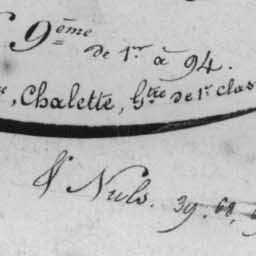 9ème
de 1er à 94.
Chalette, Gtre de 1e clas
Nuls. 39. 68,